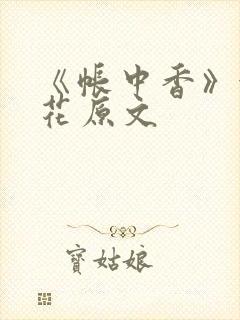 《帐中香》
花原文
寶姑娘